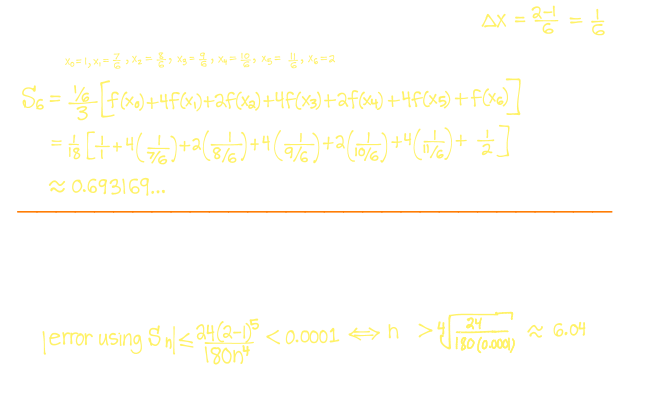 Δx = (2-1)/6 = 1/6
x₀=1, x₁=7/6, x₂=8/6, x₃=9/6, x₄=10/6, x₅=11/6, x₆=2
S₆ = (1/6)/3 [f(x₀)+4f(x₁)+2f(x₂)+4f(x₃)+2f(x₄)+4f(x₅)+f(x₆)]
= 1/18 [1/1 + 4(1/(7/6)) + 2(1/(8/6)) + 4(1/(9/6)) + 2(1/(10/6)) + 4(1/(11/6)) + 1/2]
≈ 0.693169...
|error using Sₙ| ≤ 24(2-1)⁵/180n⁴ < 0.0001 ⟺ n > ⁴√(24/180(0.0001)) ≈ 6.04